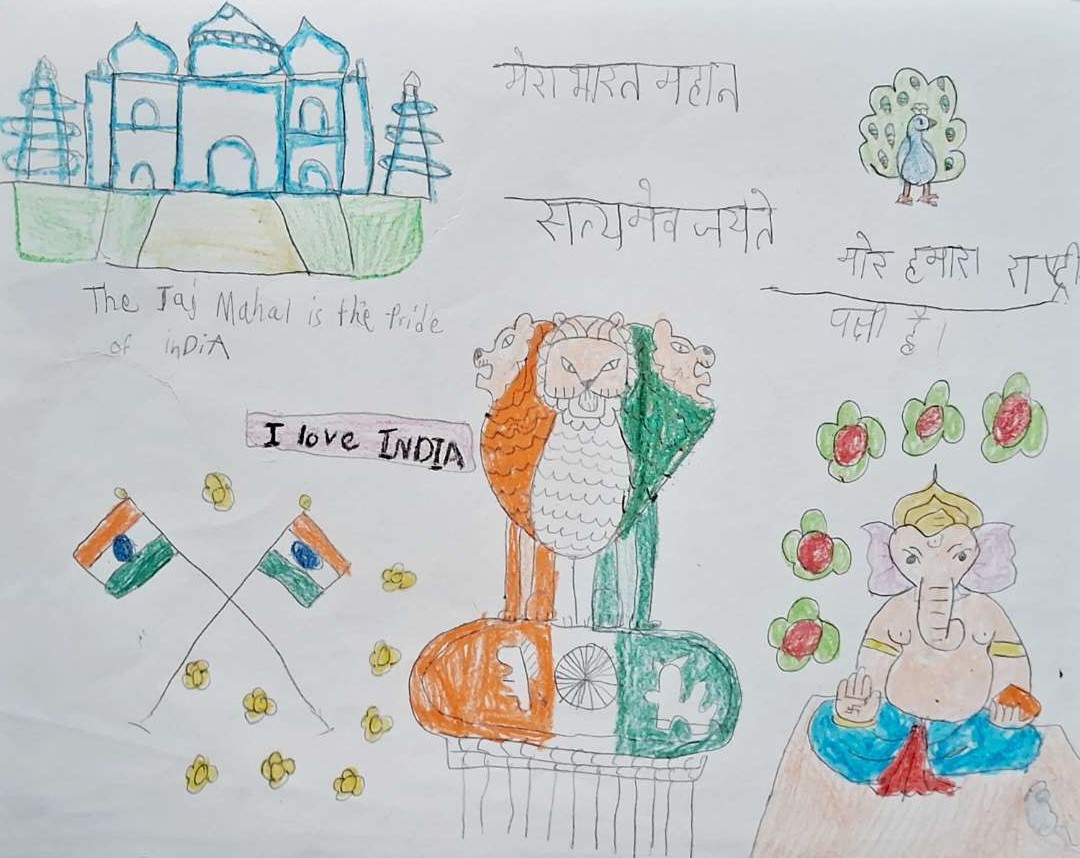 मेरा भारत महान
सत्यमेव जयते
मोर हमारा राष्ट्री
पक्षी है।
The Taj Mahal is the Pride
of inDiA
I love INDIA